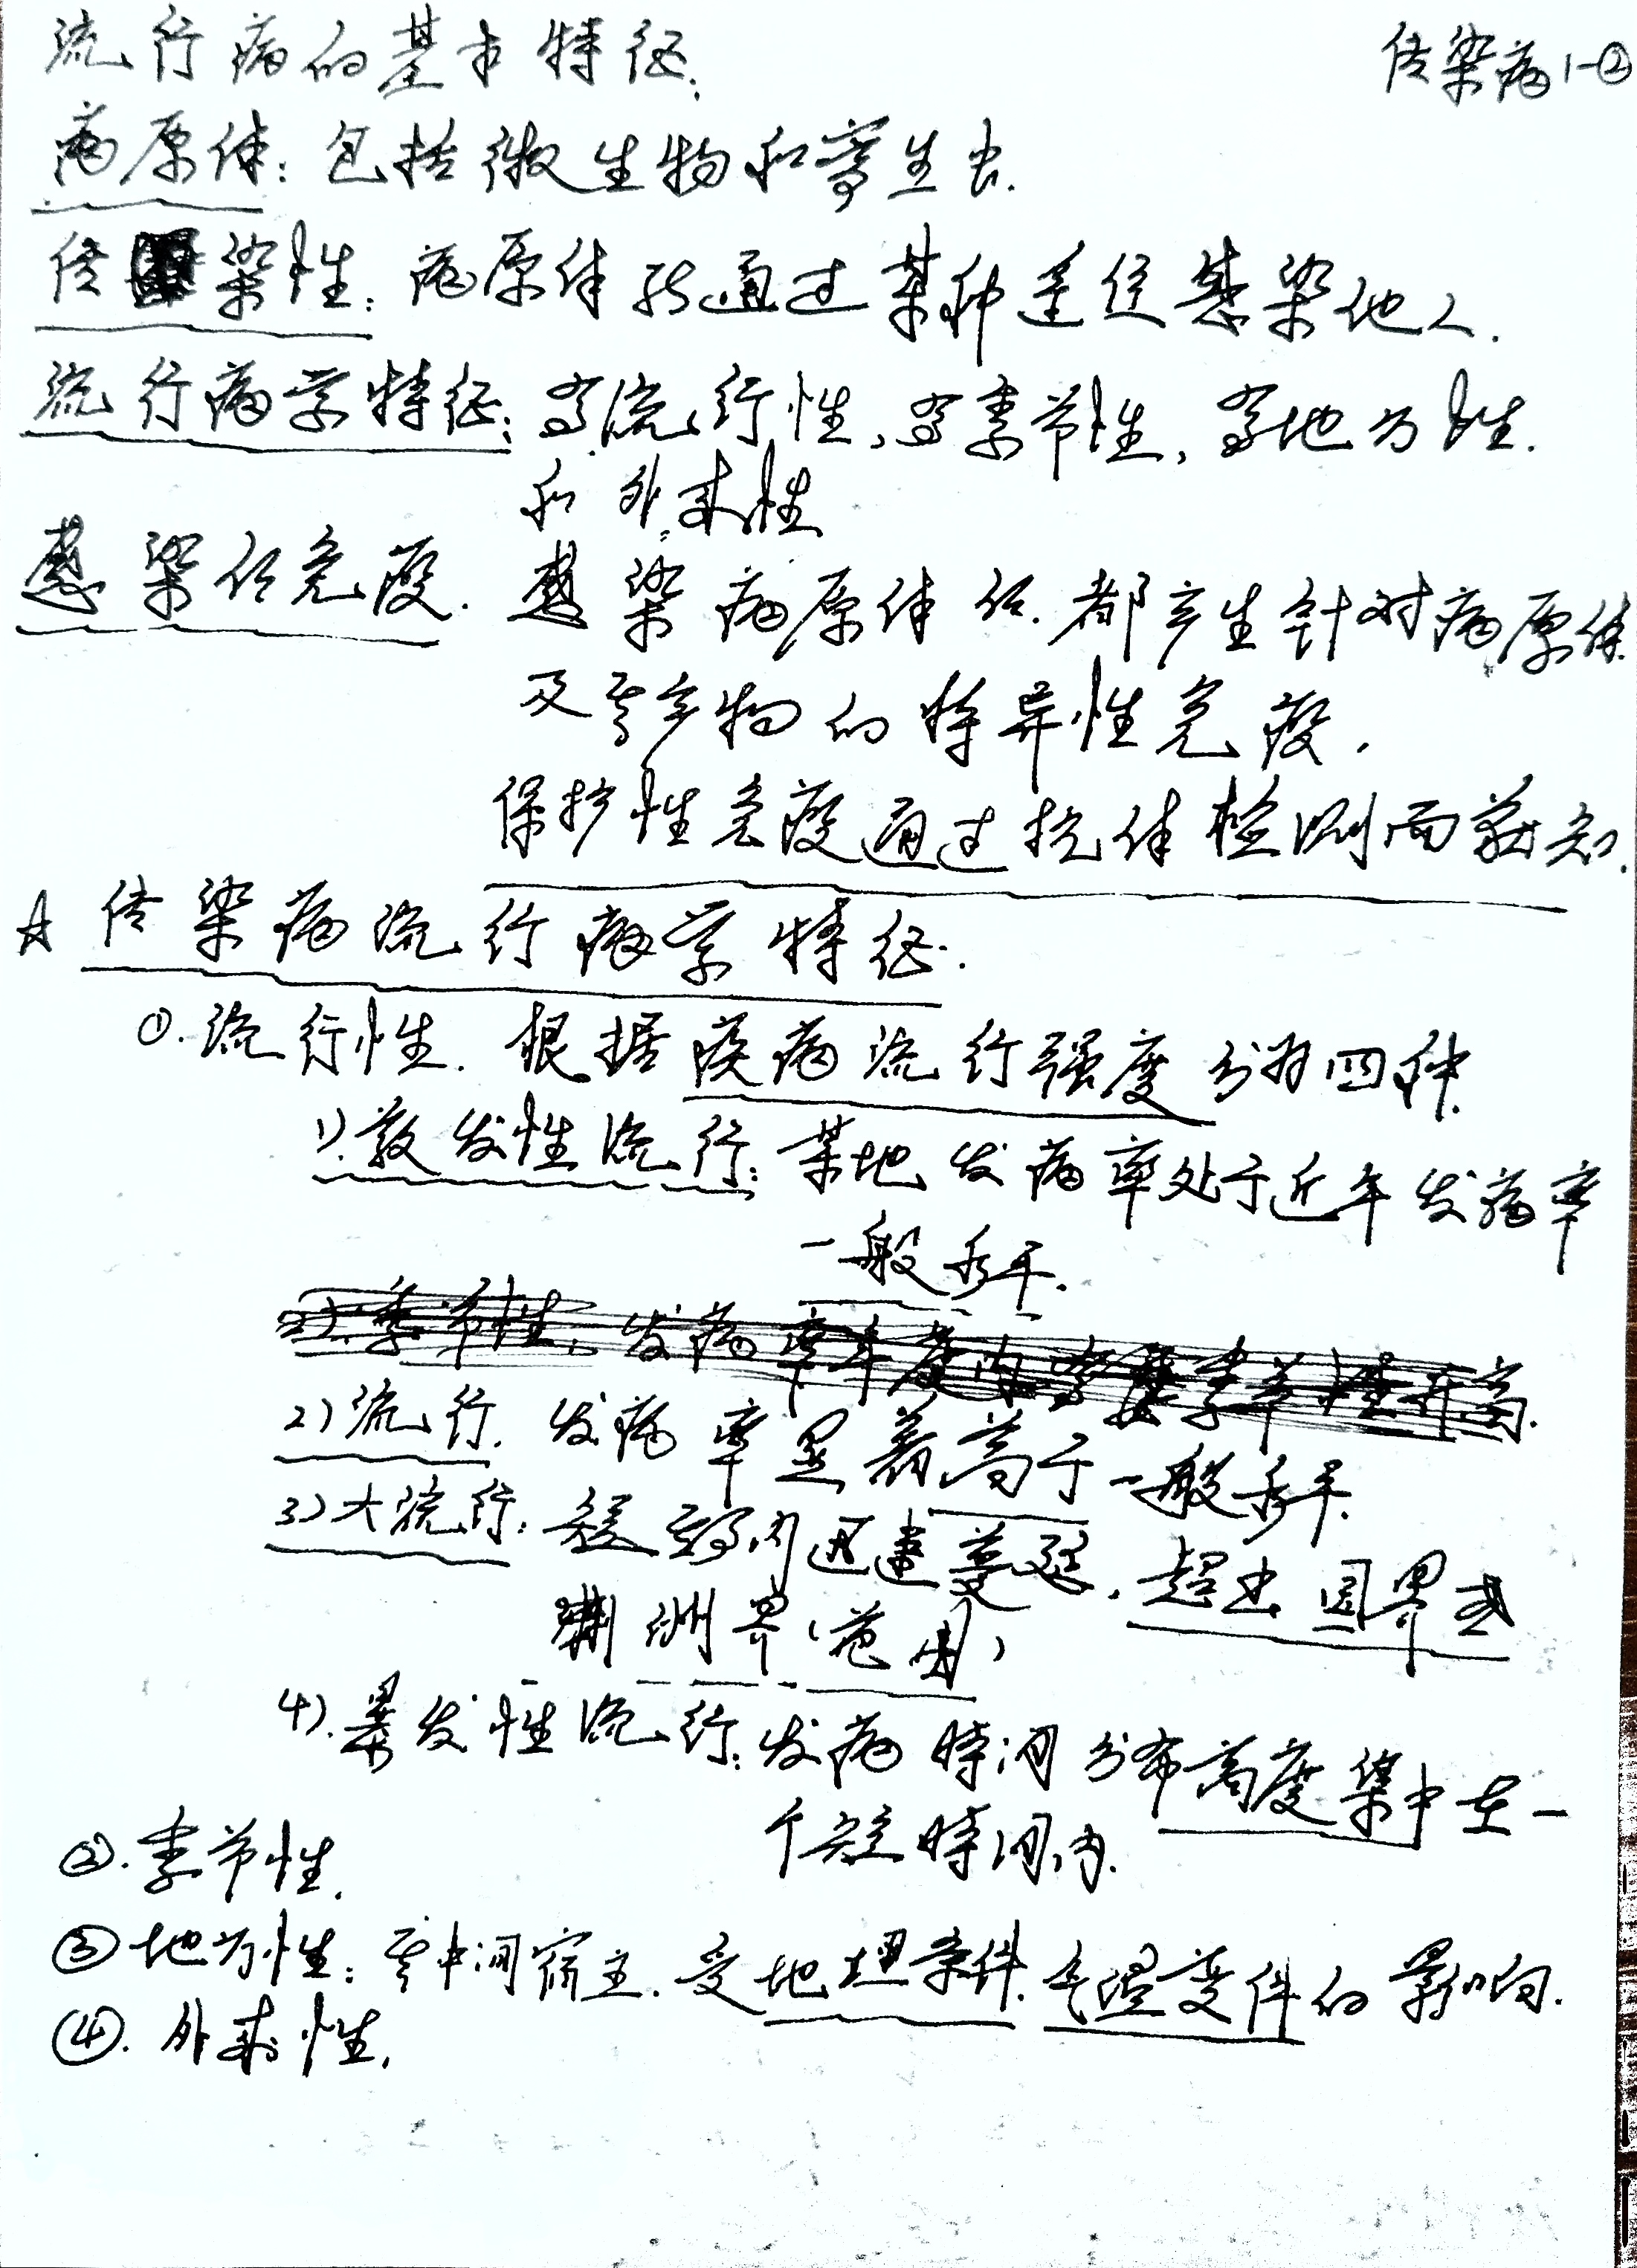 流行病的基本特征.
传染病1-②
病原体: 包括微生物和寄生虫.
传染性: 病原体能通过某种途径感染他人.
流行病学特征: 有流行性, 有季节性, 有地方性.
和外来性
感染后免疫. 感染病原体后. 都产生针对病原体
及其产物的特异性免疫.
保护性免疫通过抗体检测而获知.
☆ 传染病流行病学特征.
①. 流行性. 根据疾病流行强度分为四种.
1). 散发性流行: 某地发病率处于近年发病率
一般水平.
2). 季节性: 发病率年度内季节性升高.
2) 流行. 发病率显著高于一般水平.
3) 大流行: 短期内迅速蔓延. 超出国界或
洲界(范围)
4). 暴发性流行: 发病时间分布高度集中在一
个短时间内.
②. 季节性.
③ 地方性: 其中间宿主. 受地理条件. 气温变件的影响.
④. 外来性.